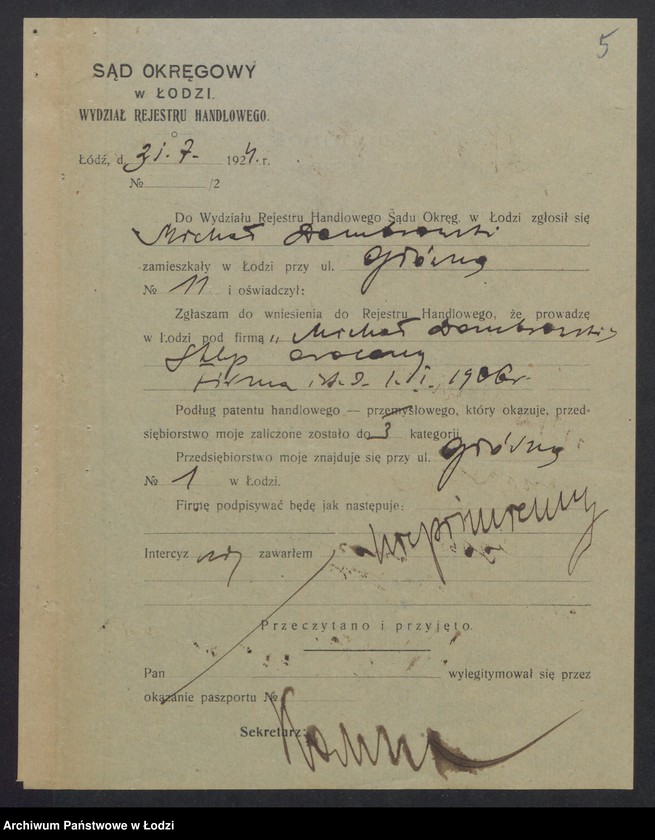 5
SĄD OKRĘGOWY
w ŁODZI.
WYDZIAŁ REJESTRU HANDLOWEGO.
Łódź, d. 31. 7. 1924. r.
№ /2
Do Wydziału Rejestru Handlowego Sądu Okręg. w Łodzi zgłosił się
Michał Dombrowski
zamieszkały w Łodzi przy ul. Główną
№ 11 i oświadczył:
Zgłaszam do wniesienia do Rejestru Handlowego, że prowadzę
w Łodzi pod firmą „ Michał Dombrowski
Skl
Firma ist. 1906r.
Podług patentu handlowego — przemysłowego, który okazuje, przed-
siębiorstwo moje zaliczone zostało do 3 kategorji
Przedsiębiorstwo moje znajduje się przy ul. Główną
№ 1 w Łodzi.
Firmę podpisywać będę jak następuje:
Intercyz nie zawarłem
Przeczytano i przyjęto.
Pan wylegitymował się przez
okazanie paszportu №
Sekretarz:
Archiwum Państwowe w Łodzi